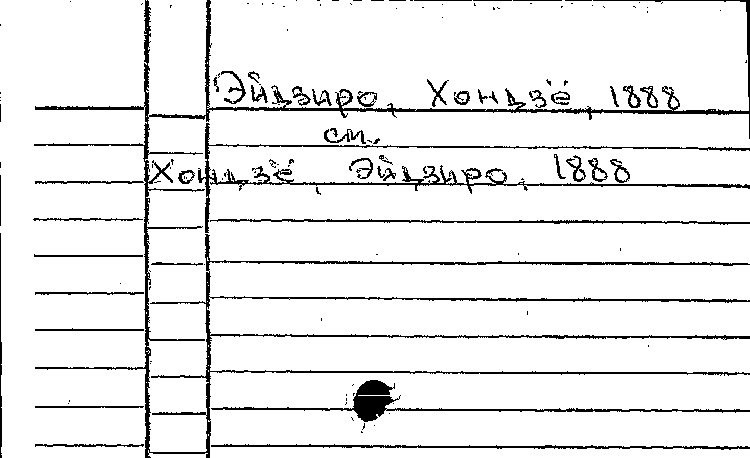 Эйдзиро, Хондзё, 1888
см.
Хондзё, Эйдзиро, 1888